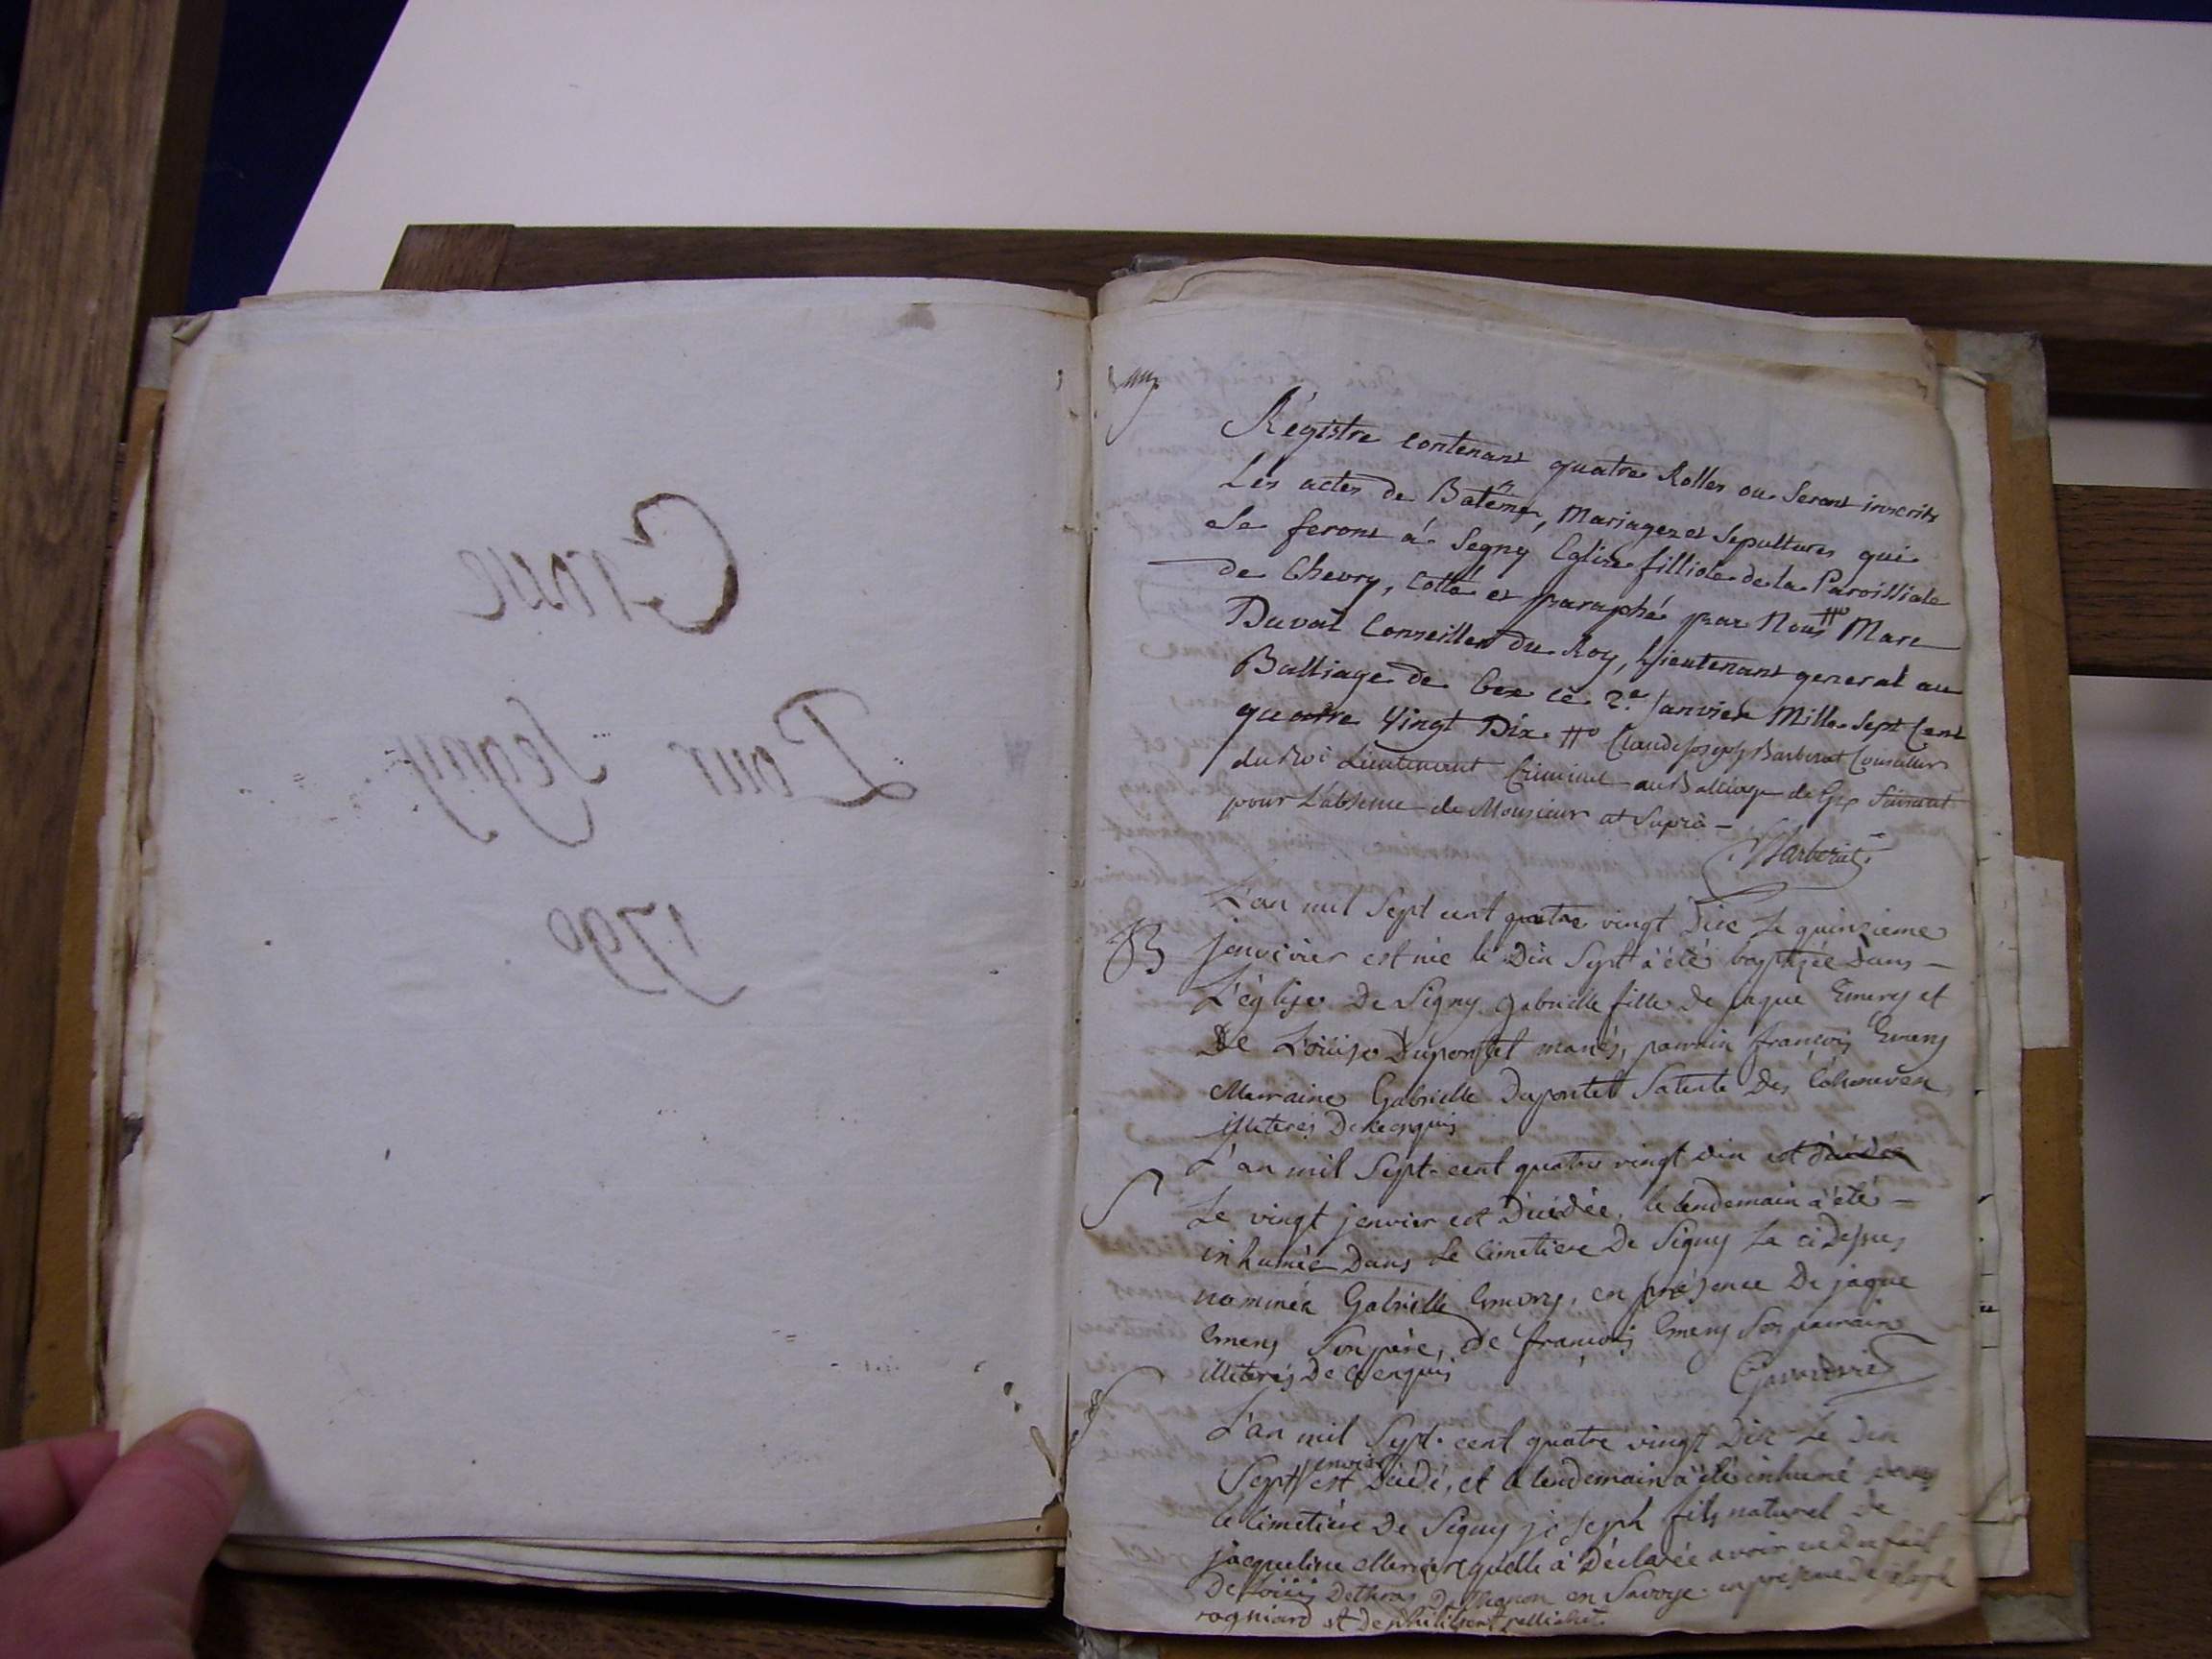 Grosse
Pour Segny
1790
Régistre contenant quatre Rolles ou Seront inscrits
Les actes de Batême, Mariages et Sepultures qui
se feront á Segny Eglise filliole de la Paroissiale
de Chevry, Cotté et paraphé par Nous # Marc
Duval Conseiller du Roy, Lieutenant general au
Balliage de Gex ce 2.e Janvier Mille Sept Cent
quatre Vingt Dix # Claude Joseph Barberat Conseiller
du Roi Lieutenant Criminel au Balliage de Gex
pour L'absence de Monsieur at Suprà —
Barberat
L'an mil Sept cent quatre vingt Dix Le quinzieme
B janvivier est née le Dix Sept à été baptisée Dans —
L'église De Segny Gabrielle fille De jaque Emery et
De Loüise Dupontet mariés, parrain françois Emery
Marraine Gabrielle Dupontet
illiterés De ce enquis
L'an mil Sept cent quatre vingt dix
S Le vingt janvier est Décédée, le lendemain à été —
inhumée Dans Le Cimetiere De Segny La ci Dessus
nommée Gabrielle Emery, en présence De jaque
Emery Son père, de françois Emery Son parrain
illiterés De ce enquis
S L'an mil Sept. cent quatre vingt Dix Le Dix
Sept janvier est Décédé, et le lendemain à été inhumé dans
le Cimetière De Segny joseph fils naturel de
jacqueline Mercier quelle à Déclarée avoir eu Du fait
De Loüis en Savoye en présence De joseph
rogniard et De philibert